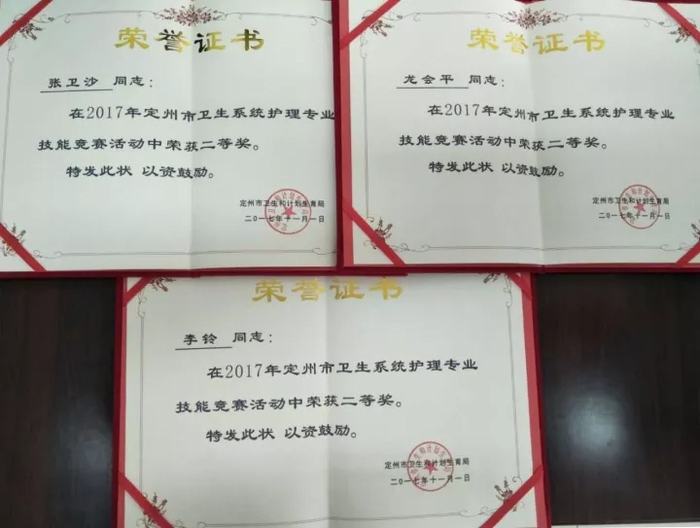 荣誉证书
张卫沙 同志：
在2017年定州市卫生系统护理专业
技能竞赛活动中荣获二等奖。
特发此状 以资鼓励。
定州市卫生和计划生育局
二〇一七年十一月一日
荣誉证书
龙会平 同志：
在2017年定州市卫生系统护理专业
技能竞赛活动中荣获二等奖。
特发此状 以资鼓励。
定州市卫生和计划生育局
二〇一七年十一月一日
荣誉证书
李铃 同志：
在2017年定州市卫生系统护理专业
技能竞赛活动中荣获二等奖。
特发此状 以资鼓励。
定州市卫生和计划生育局
二〇一七年十一月一日